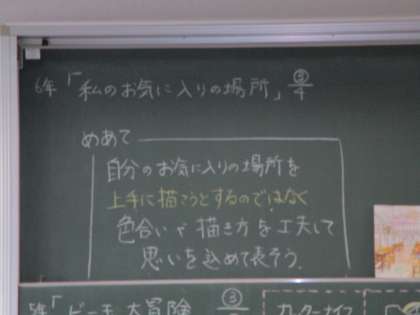 6年「私のお気に入りの場所」③/4
めあて
自分のお気に入りの場所を
上手に描こうとするのではなく
色合いや描き方を工夫して
思いを込めて表そう。
5年「ビー玉大冒険 ③
カッターナイフ